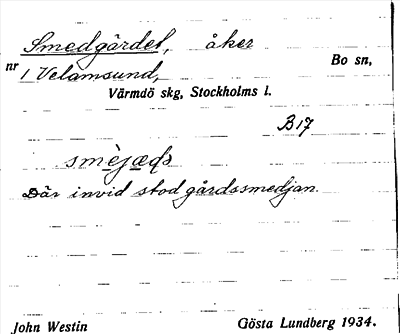 Smedgärdet, åker
nr 1 Velamsund, Bo sn,
Värmdö skg, Stockholms l.
B17
Där invid stod gårdssmedjan.
John Westin Gösta Lundberg 1934.